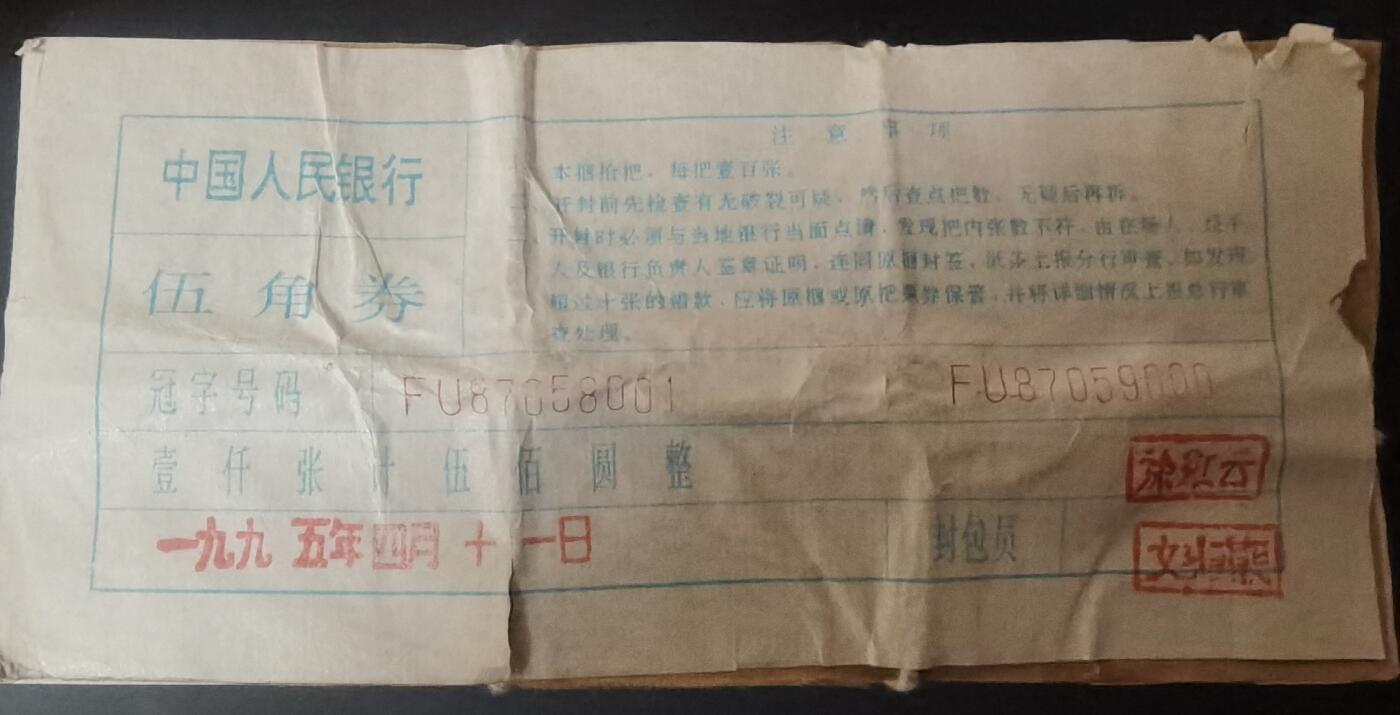 中国人民银行
伍角券
注意事项
本捆拾把，每把壹百张。
开封前先检查有无破裂可疑，然后查点把数，无疑后再拆。
开封时必须与当地银行当面点清，发现把内张数不符，由在场人、经手
人及银行负责人签章证明，连同原捆封签，纸条上报分行审查，如发现
超过十张的错款，应将原捆或原把票券保管，并将详细情况上报总行审
查处理。
冠字号码 FU87058001 FU87059000
壹仟张计伍佰圆整
一九九五年四月十一日
封包员